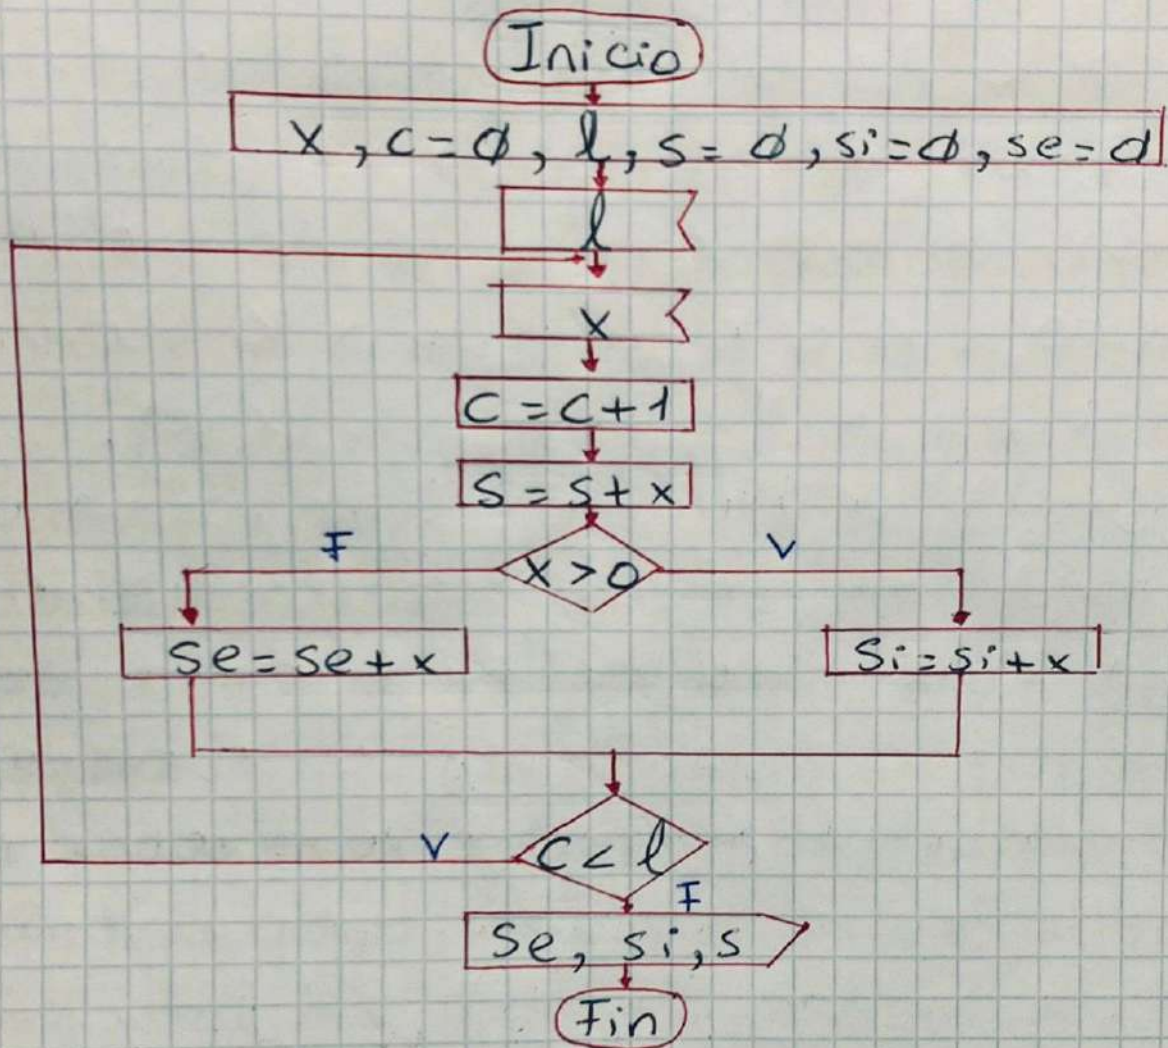 Inicio
x, c=ø, l, s=ø, si=ø, se=ø
l
x
c=c+1
s=s+x
F
x>0
V
se=se+x
si=si+x
V
c<l
F
se, si, s
Fin